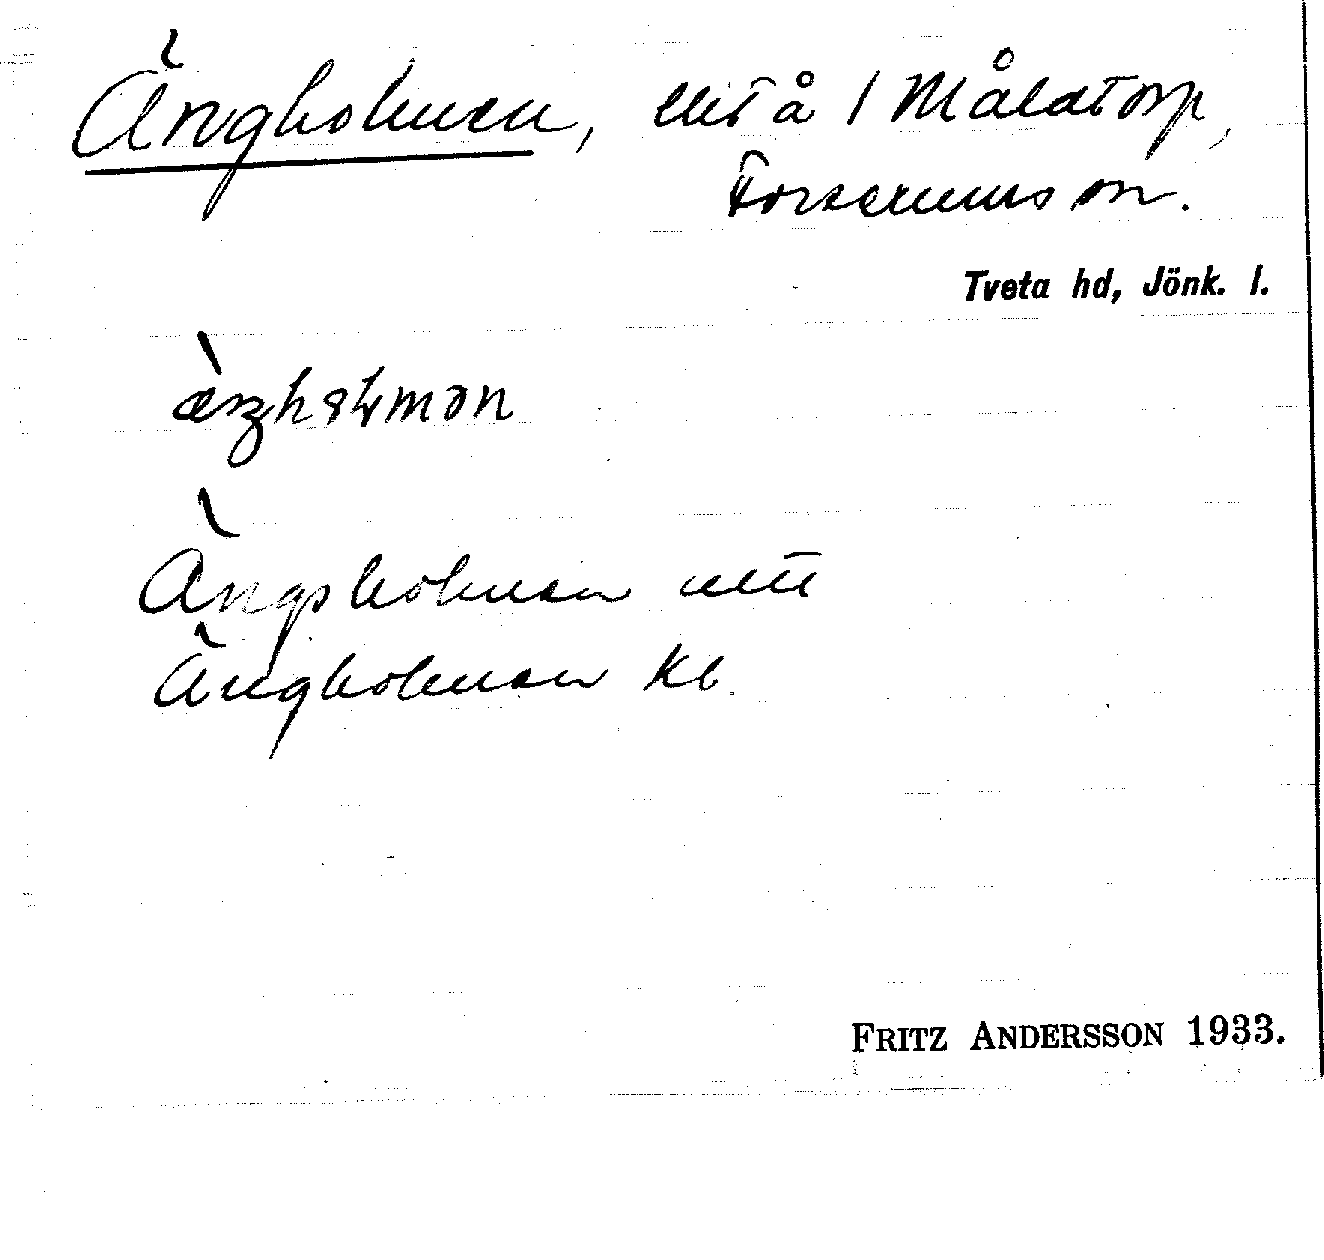 Ängholmen, litt å / Målatorp,
Forserums sn.
Tveta hd, Jönk. l.
Ängsholmen
Ängholmen kb
FRITZ ANDERSSON 1933.